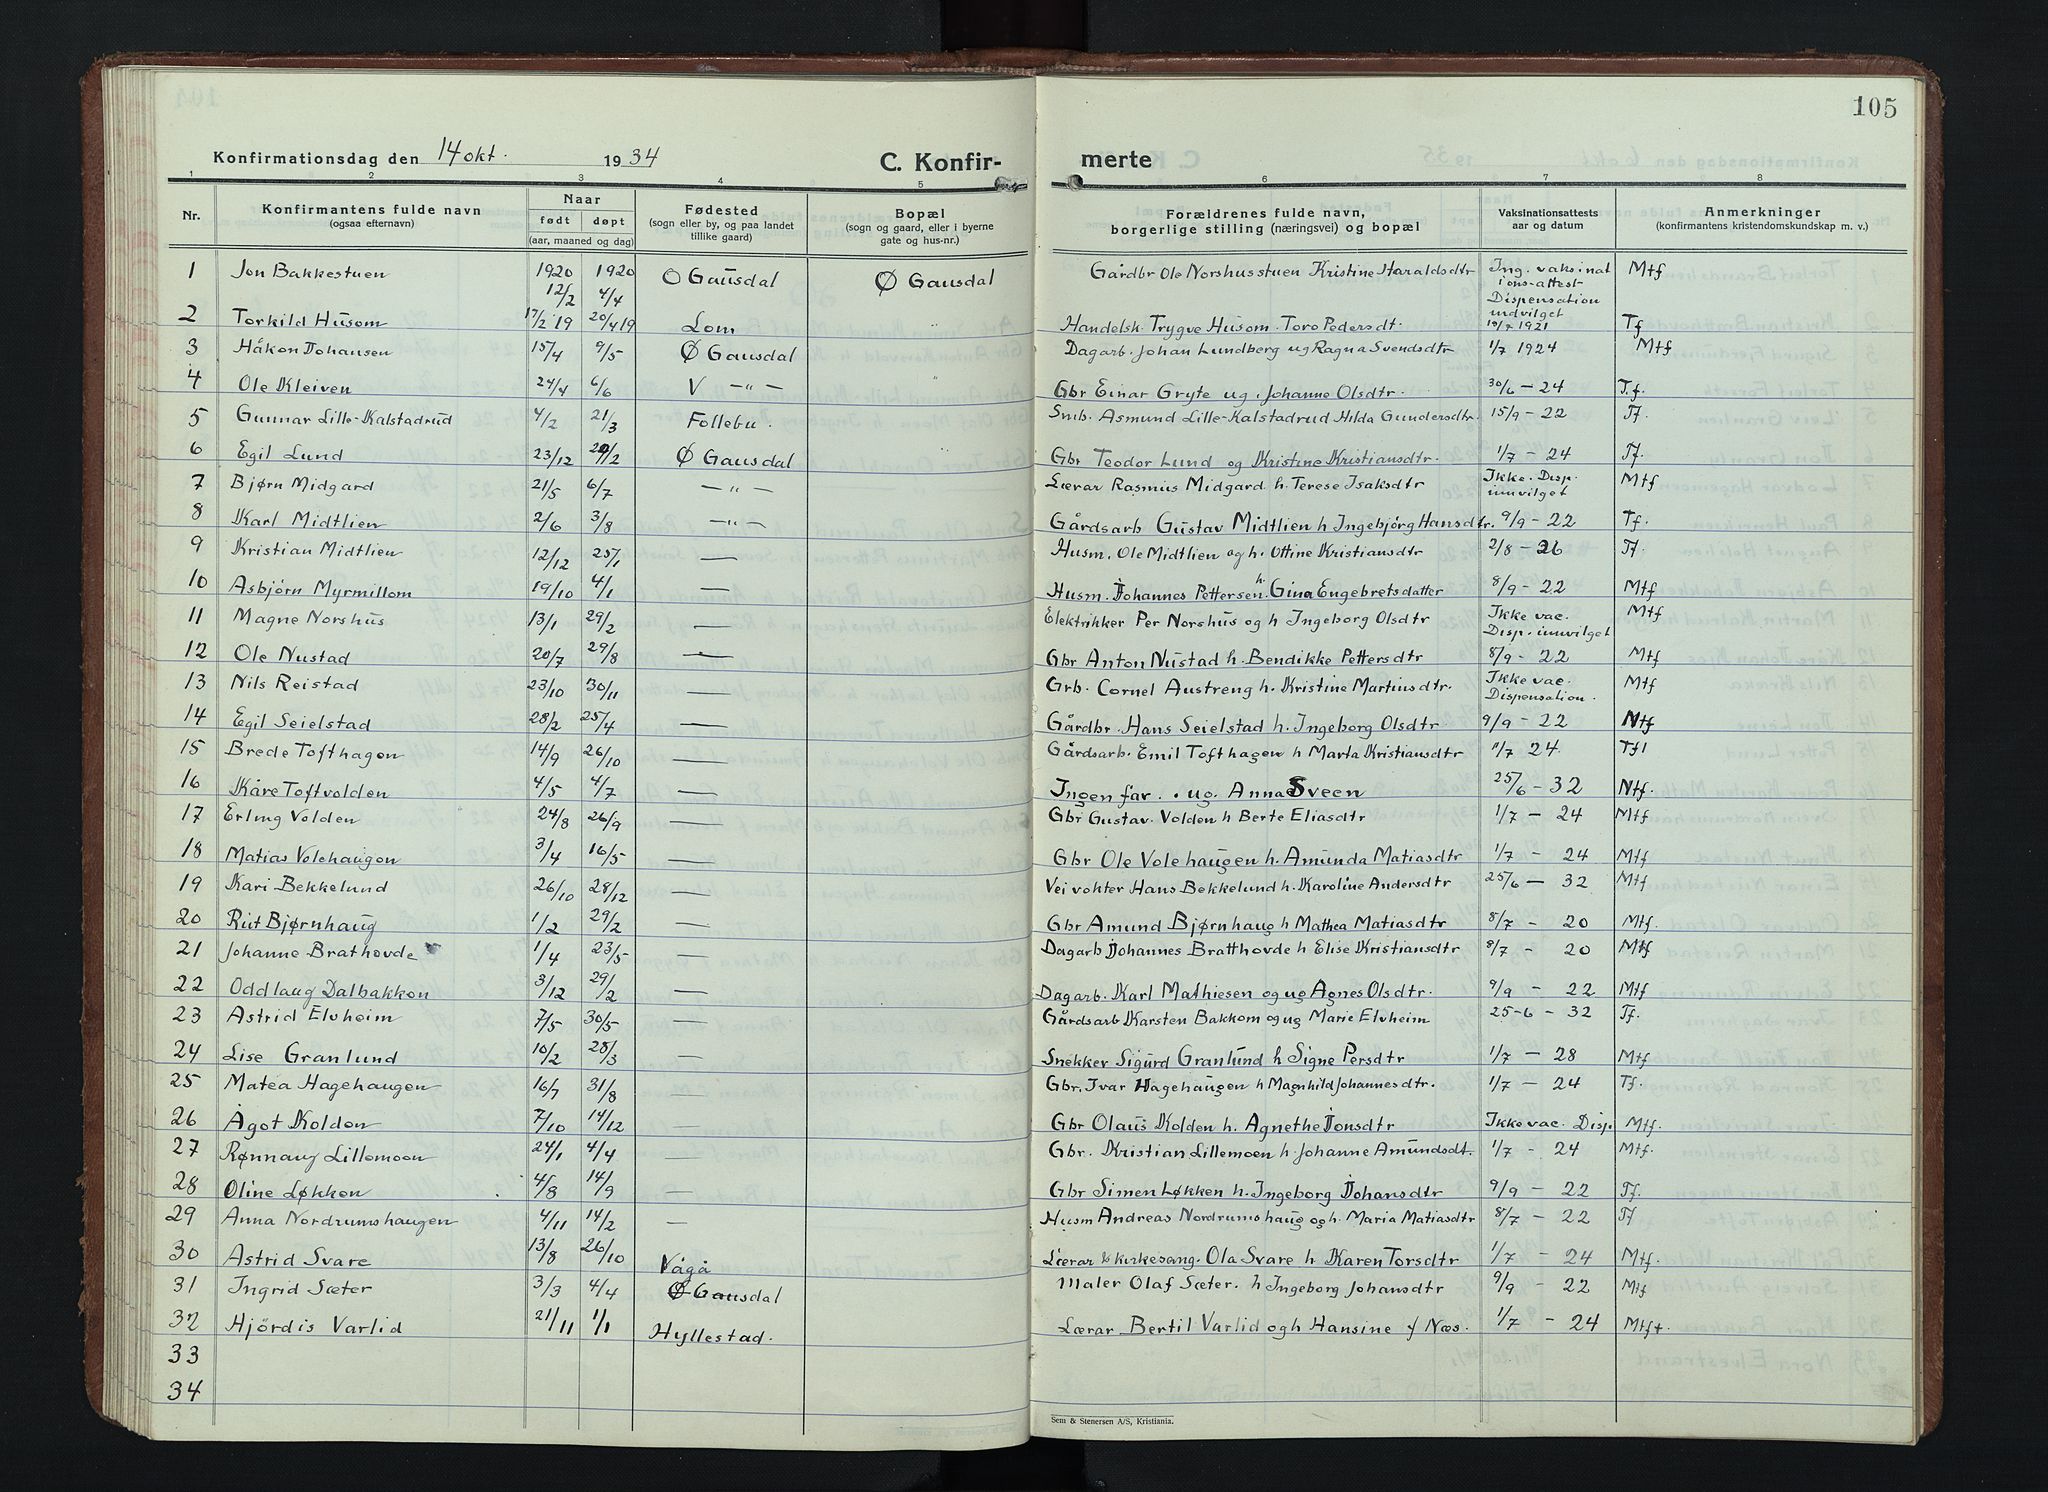 105
Konfirmationsdag den 14 okt. 1934 C. Konfir- merte
1 2 3 4 5 6 7 8
Nr. Konfirmantens fulde navn (ogsaa efternavn) Naar født døpt (aar, maaned og dag) Fødested (sogn eller by, og paa landet tillike gaard) Bopæl (sogn og gaard, eller i byerne gate og hus-nr.) Forældrenes fulde navn, borgerlige stilling (næringsvei) og bopæl Vaksinationsattests aar og datum Anmerkninger (konfirmantens kristendomskundskap m. v.)
1 Jon Bakkestuen 1920 12/2 1920 4/4 O Gausdal Ø Gausdal Gårdbr Ole Norshusstuen Kristine Haraldsdtr Ing. vaksinat ions-attest- Dispensation indvilget Mtf
2 Torkild Husom 17/2 19 20/4 19 Lom " Handelsk. Trygve Husom. Toro Pedersdt. 19/7 1921 Tf
3 Håkon Johansen 15/4 9/5 Ø Gausdal Dagarb. Johan Lundberg ug Ragna Svendsdtr 1/7 1924 Mtf
4 Ole Kleiven 24/4 6/6 V —"— " Gbr Einar Gryte ug. Johanne Olsdtr. 30/6 – 24 T.f.
5 Gunnar Lille-Kalstadrud 4/2 21/3 Follebu. Smb. Asmund Lille-Kalstadrud Hilda Gundersdtr. 15/9 – 22 Tf.
6 Egil Lund 23/12 Ø Gausdal Gbr Teodor Lund og Kristine Kristiansdtr. 1/7 – 24 Tf.
7 Bjørn Midgard 21/5 6/7 —"— Lærar Rasmus Midgard h. Terese Isaksdtr Ikke. Disp. innvilget Mtf
8 Karl Midtlien 2/6 3/8 —"— Gårdsarb Gustav Midtlien h Ingebjörg Hansdtr. 9/9 – 22 Tf.
9 Kristian Midtlien 12/12 25/1 — Husm. Ole Midtlien og h. Ottine Kristiansdtr 2/8 – 26 Tf.
10 Asbjörn Myrmillom 19/10 4/1 — Husm. Johannes Pettersen. h. Gina Engebretsdatter 8/9 – 22 Mtf
11 Magne Norshus 13/1 29/2 — Elektrikker Per Norshus og h Ingeborg Olsdtr Ikke vac. Disp. innvilget Mtf
12 Ole Nustad 20/7 29/8 — Gbr Anton Nustad h. Bendikke Pettersdtr 8/9 – 22 Mtf
13 Nils Reistad 23/10 30/11 — Grb. Cornel Austreng h. Kristine Martinsdtr. Ikke vac. Dispensation. Mtf
14 Egil Seielstad 28/2 25/4 — Gårdbr. Hans Seielstad h. Ingeborg Olsdtr 9/9 – 22 Ntf
15 Brede Tofthagen 14/9 26/10 — Gårdsarb. Emil Tofthagen h Marta Kristiansdtr 1/7 24 Tf
16 Kåre Toftvolden 4/5 4/7 — Ingen far. . ug. Anna Sveen 25/6 – 32 Ntf.
17 Erling Volden 24/8 26/9 — Gbr Gustav. Volden h Berte Eliasdtr 1/7 – 24 Mtf
18 Matias Volehaugen 3/4 16/5 — Gbr Ole Volehaugen h. Amunda Matiasdtr 1/7 – 24 Mtf
19 Kari Bekkelund 26/10 28/12 — Veivokter Hans Bekkelund h. Karoline Andersdtr 25/6 – 32 Mtf
20 Rut Bjørnhaug 1/2 29/2 — Gbr Amund Bjørnhaug h Mathea Matiasdtr 8/7 – 20 Mtf.
21 Johanne Brathovde 1/4 23/5 — Dagarb Johannes Bratthovde h Elise Kristiansdtr 8/7 – 20 Mtf
22 Oddlaug Dalbakken 3/12 29/2 — Dagarb. Karl Mathiesen og ug Agnes Olsdtr. 9/9 – 22 Mtf
23 Astrid Elvheim 7/5 30/5 — Gårdsarb Karsten Bakkom og ug Marie Elvheim 25-6 – 32 Tf.
24 Lise Granlund 10/2 28/3 — Snekker Sigurd Granlund h Signe Persdtr 1/7 – 28 Mtf
25 Matea Hagehaugen 16/7 31/8 — Gbr. Ivar Hagehaugen h Magnhild Johannesdtr. 1/7 – 24 Tf.
26 Ågot Kolden 7/10 14/12 — Gbr Olaus Kolden h. Agnethe Jonsdtr Ikke vac. Disp. Mtf.
27 Rønnaug Lillemoen 24/1 4/4 — Gbr. Kristian Lillemoen h. Johanne Amundsdt. 1/7 – 24 Mtf.
28 Oline Løkken 4/8 14/9 — Gbr Simen Løkken h. Ingeborg Johansdtr 9/9 – 22 Tf.
29 Anna Nordrumshaugen 4/11 14/2 — Husm Andreas Nordrumshaug og h. Maria Matiasdtr 8/7 – 22 Tf
30 Astrid Svare 13/8 26/10 Vågå Lærar & kirkesang. Ola Svare h Karen Torsdtr 1/7 – 24 Mtf.
31 Ingrid Sæter 3/3 4/4 Ø Gausdal Maler Olaf Sæter. h Ingeborg Johansdtr 9/9 – 22 Mtf
32 Hjördis Varlid 21/11 1/1 Hyllestad. Lærar Bertil Varlid og h Hansine f Næs. 1/7 – 24 Mtf+.
33
34
Sem & Stenersen A/S, Kristiania.